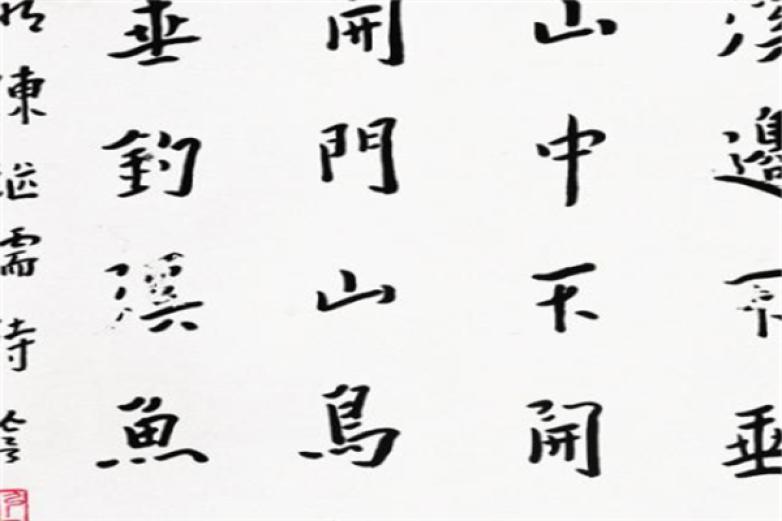 溪邊不垂
山中不開
開門山鳥
垂釣溪魚
明陳繼儒詩